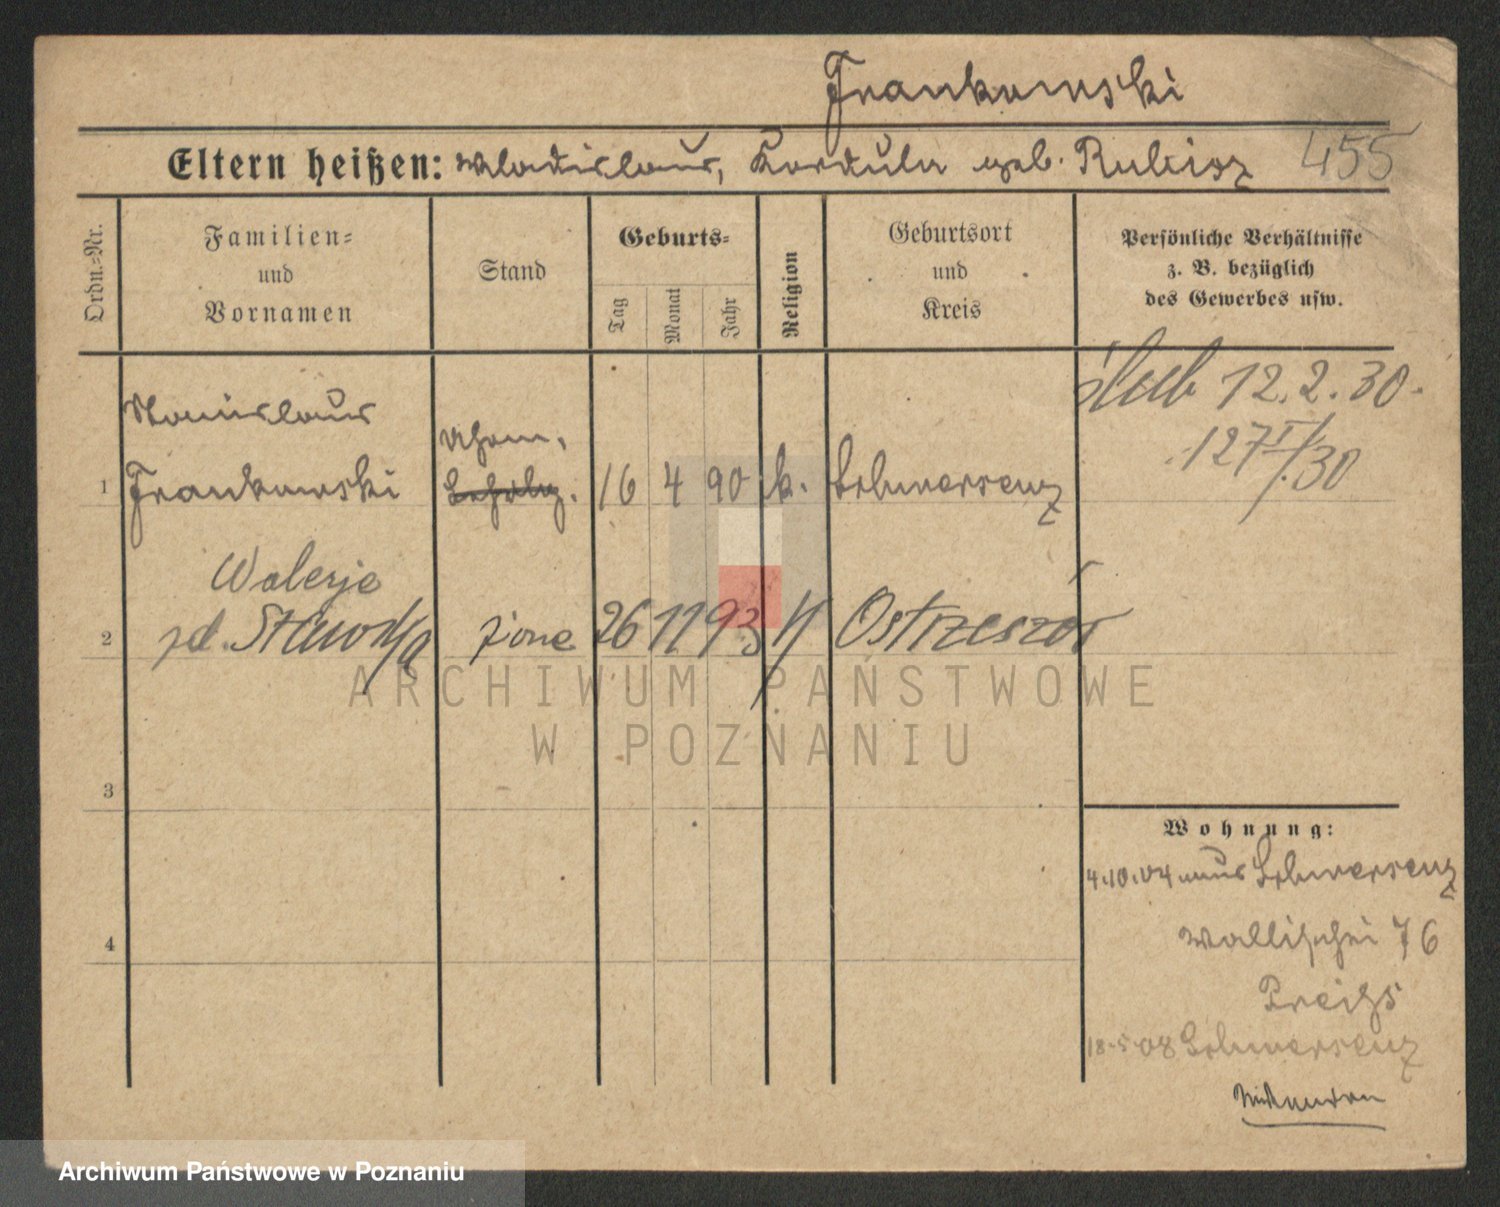 Frankowski
Eltern heißen: Wladislaus, Kordula geb. Rubisz 455
Ordn.-Nr.
Familien-
und
Vornamen
Stand
Geburts-
Tag
Monat
Jahr
Religion
Geburtsort
und
Kreis
Persönliche Verhältnisse
z. B. bezüglich
des Gewerbes usw.
ślub 12.2.30.
127 I/.30
Stanislaus
1 Frankowski 16 4 90 k. Schwersenz
Walerja
2 Stawna żona 26 11 93 Ostrzeszów
3
4
Wohnung:
4.10.04 aus Schwersenz
Wallischei 76
18.5.08 Schwersenz
ARCHIWUM PAŃSTWOWE
W POZNANIU
Archiwum Państwowe w Poznaniu